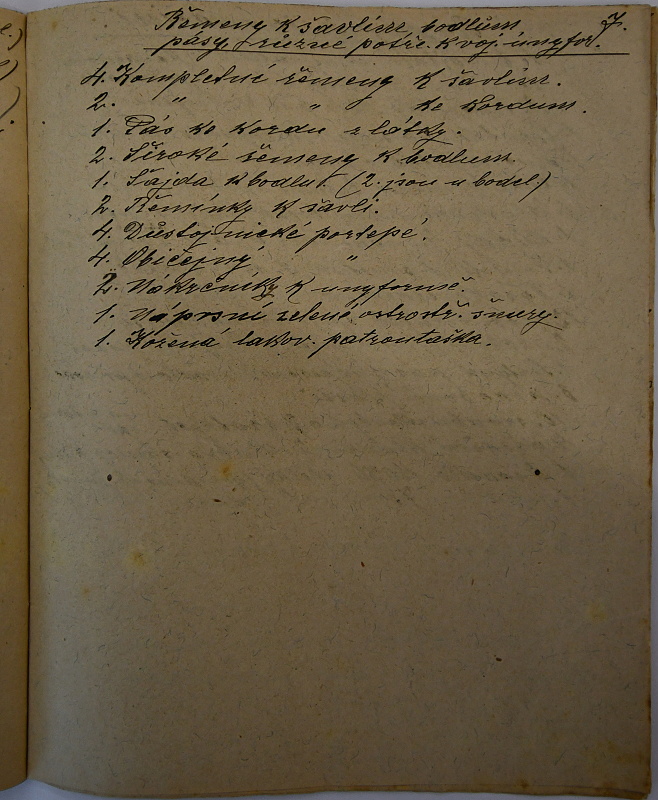 7.
Řemeny k šavlím bodlům
pásy, různé potře. k voj. unyfor.
4. Kompletní řemeny k šavlím.
2. " " ke kordům.
1. Pás ke kordu z látky.
2. Široké řemeny k bodlum.
1. Šajda k bodlu. (2. jsou u bodel)
2. Řemínky k šavli.
4. Důstojnické portepé.
4. Običejný "
2. Nákrčníky k unyformě.
1. Náprsní zelené ostrostř. šnury.
1. Kožená lakov. patrontaška.